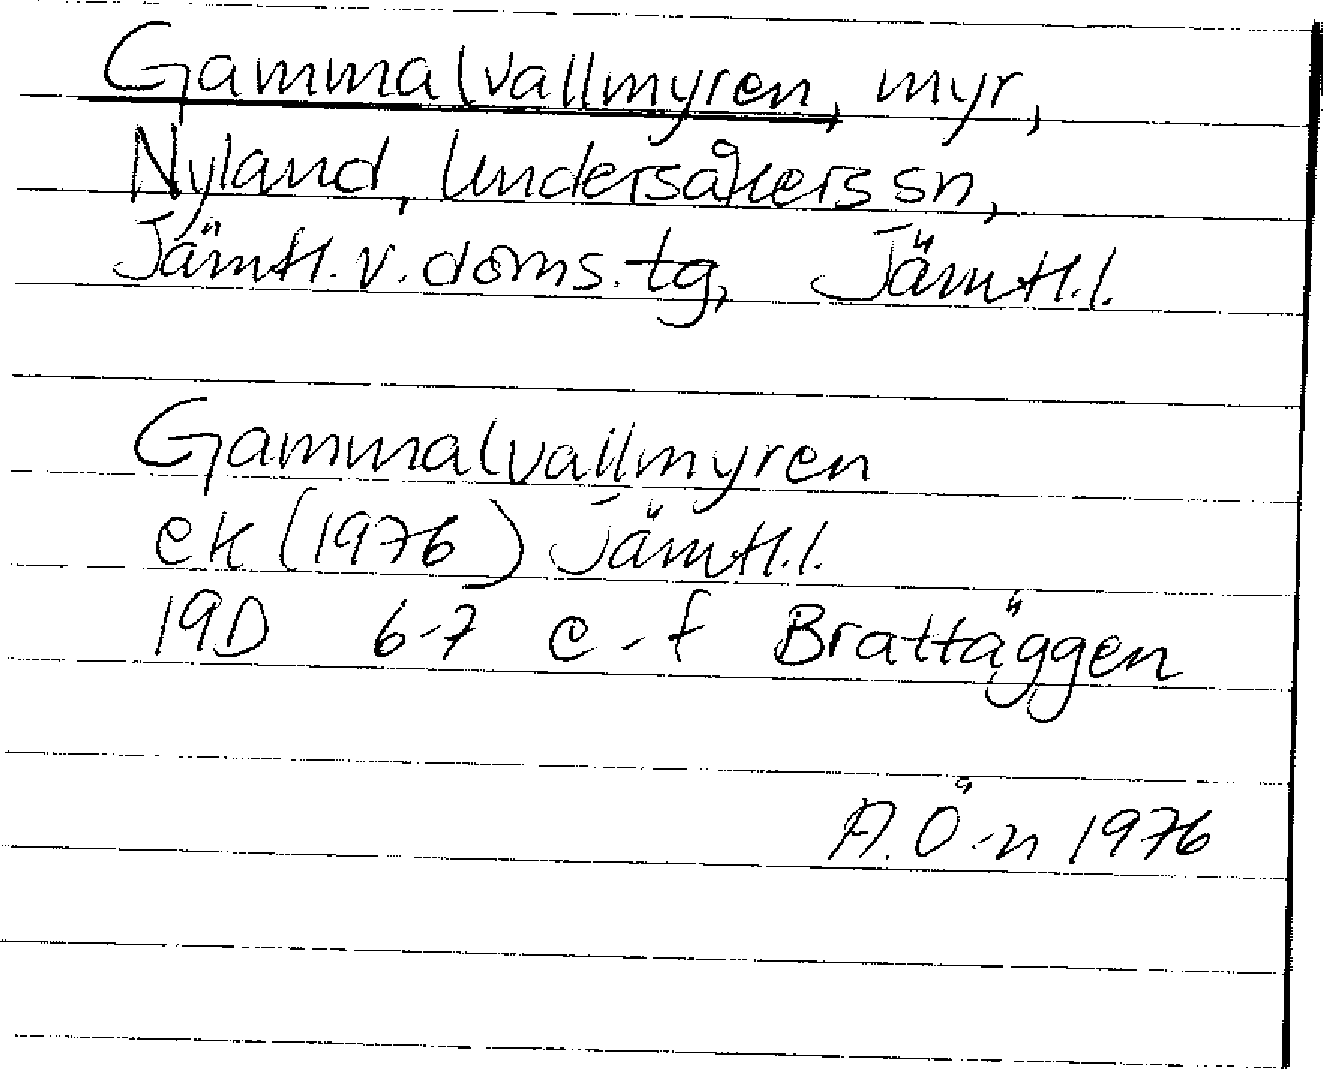 Gammalvallmyren, myr,
Nyland, Undersåkers sn,
Jämtl. v. doms. tg, Jämtl. l.
Gammalvallmyren
ek (1976) Jämtl. l.
19D 6-7 e-f Brattäggen
A. Ö-n 1976